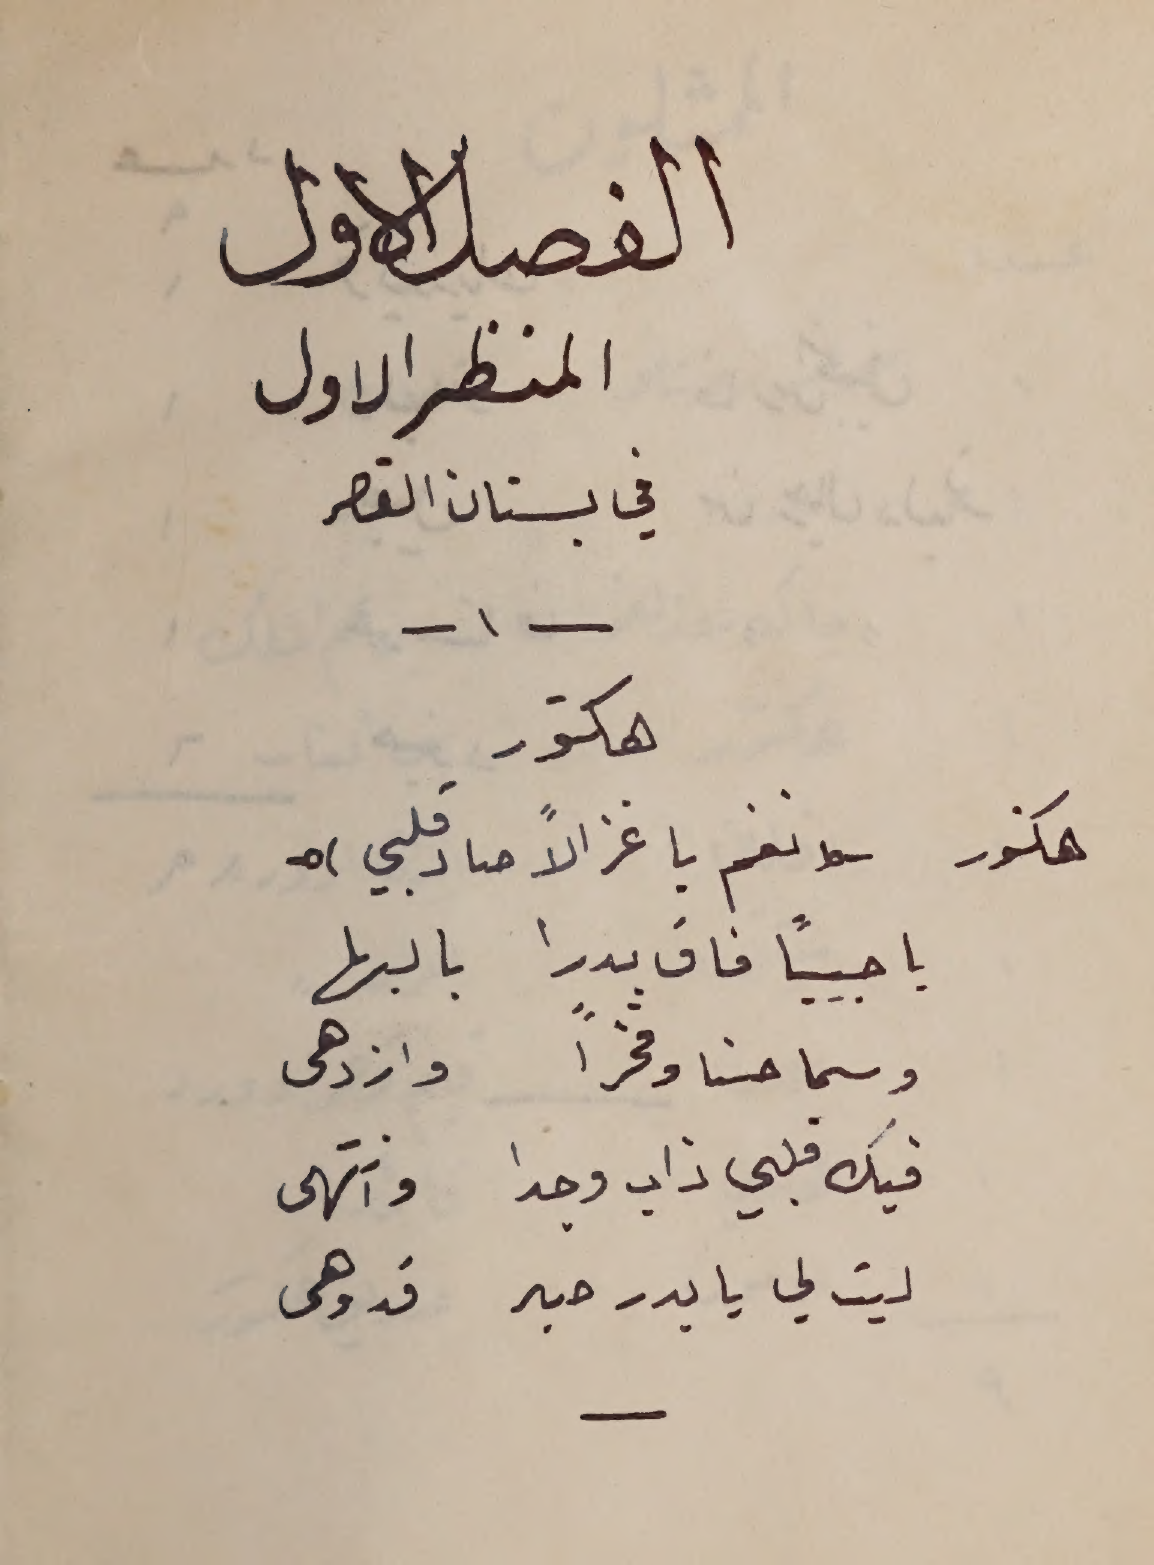 الفصل الاول
المنظر الاول
في بستان القصر
— ١ —
هكتور
هكتور نغم يا غزالاً صاد قلبي
يا حبيبًا فاق بدرا بالبها
وسما حسنا وفخرًا وازدهى
فيك قلبي ذاب وجدا وآنتهى
ليت لي يا بدر صبر قد وهى